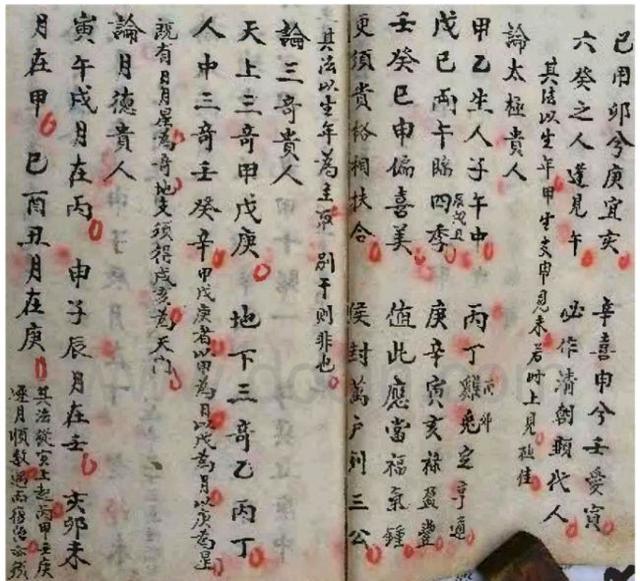 己用卯兮庚宜亥　辛喜申兮壬愛寅
六癸之人逢見午　必作清朝顯代人
其法以生年甲生支申見未若时上見極佳
論太極貴人
甲乙生人子午中　丙丁雞兔定亨通
酉卯
戊己兩午臨四季　庚辛寅亥祿盈豐
辰戌丑
壬癸巳申偏喜美　值此應當福氣鍾
更須貴格相扶合　侯封萬户列三公
其法以生年為主 別干則非也
論三奇貴人
天上三奇甲戊庚　地下三奇乙丙丁
人中三奇壬癸辛 甲戊庚者以甲為日以戊為月以庚為星
既有日月星為奇地支須得戌亥為天门
論月德貴人
寅午戌月在丙　申子辰月在壬　亥卯未
月在甲　巳酉丑月在庚　其法從寅上起丙甲壬庚
逐月順數週而復始